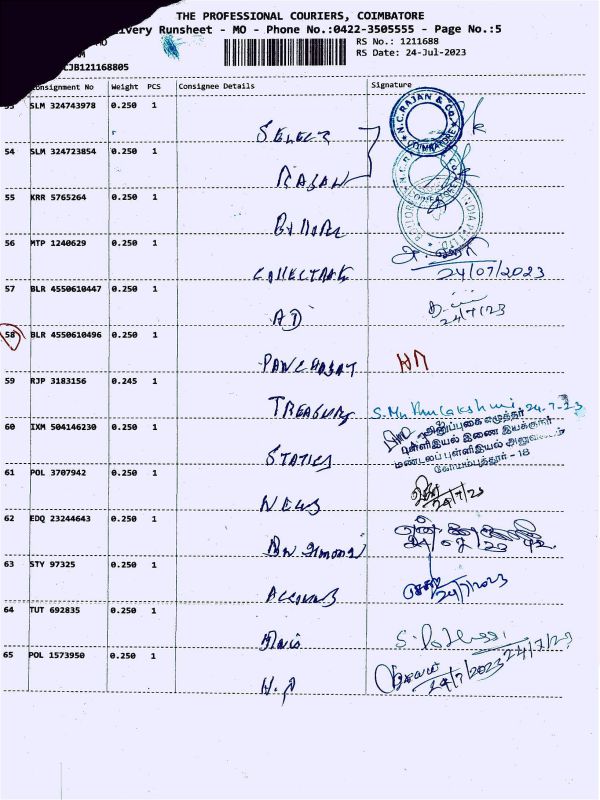 THE PROFESSIONAL COURIERS, COIMBATORE
livery Runsheet - MO - Phone No.:0422-3505555 - Page No.:5
MO RS No.: 1211688
RS Date: 24-Jul-2023
CJB121168805
onsignment No Weight PCS Consignee Details Signature
53 SLM 324743978 0.250 1 SELECT N.C.RAJAN & Co. COIMBATORE
54 SLM 324723854 0.250 1 RAJAN
55 KRR 5765264 0.250 1
56 MTP 1240629 0.250 1 24/07/2023
57 BLR 4550610447 0.250 1 AD 24/7/23
58 BLR 4550610496 0.250 1 PANCHAYAT
59 RJP 3183156 0.245 1 TREASURY S. Muthulakshmi 24.7.23
60 IXM 504146230 0.250 1 STATICS
அனுப்புகை எழுத்தர்
புள்ளியியல் இணை இயக்குநர்
மண்டலப் புள்ளியியல் அலுவலகம்
கோயம்புத்தூர் - 18
61 POL 3707942 0.250 1 NEWS 24/7/23
62 EDQ 23244643 0.250 1
63 STY 97325 0.250 1 24/7/2023
64 TUT 692835 0.250 1 24/7/23
65 POL 1573950 0.250 1 24/7/2023